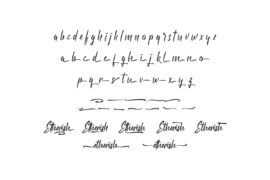 a b c d e f g h i j k l m n o p q r s t u v w x y z
a b c d e f g h i j k l m n o
p q r s t u v w x y z
Etherish Etherish Etherish Etherish Etherish
etherish etherish